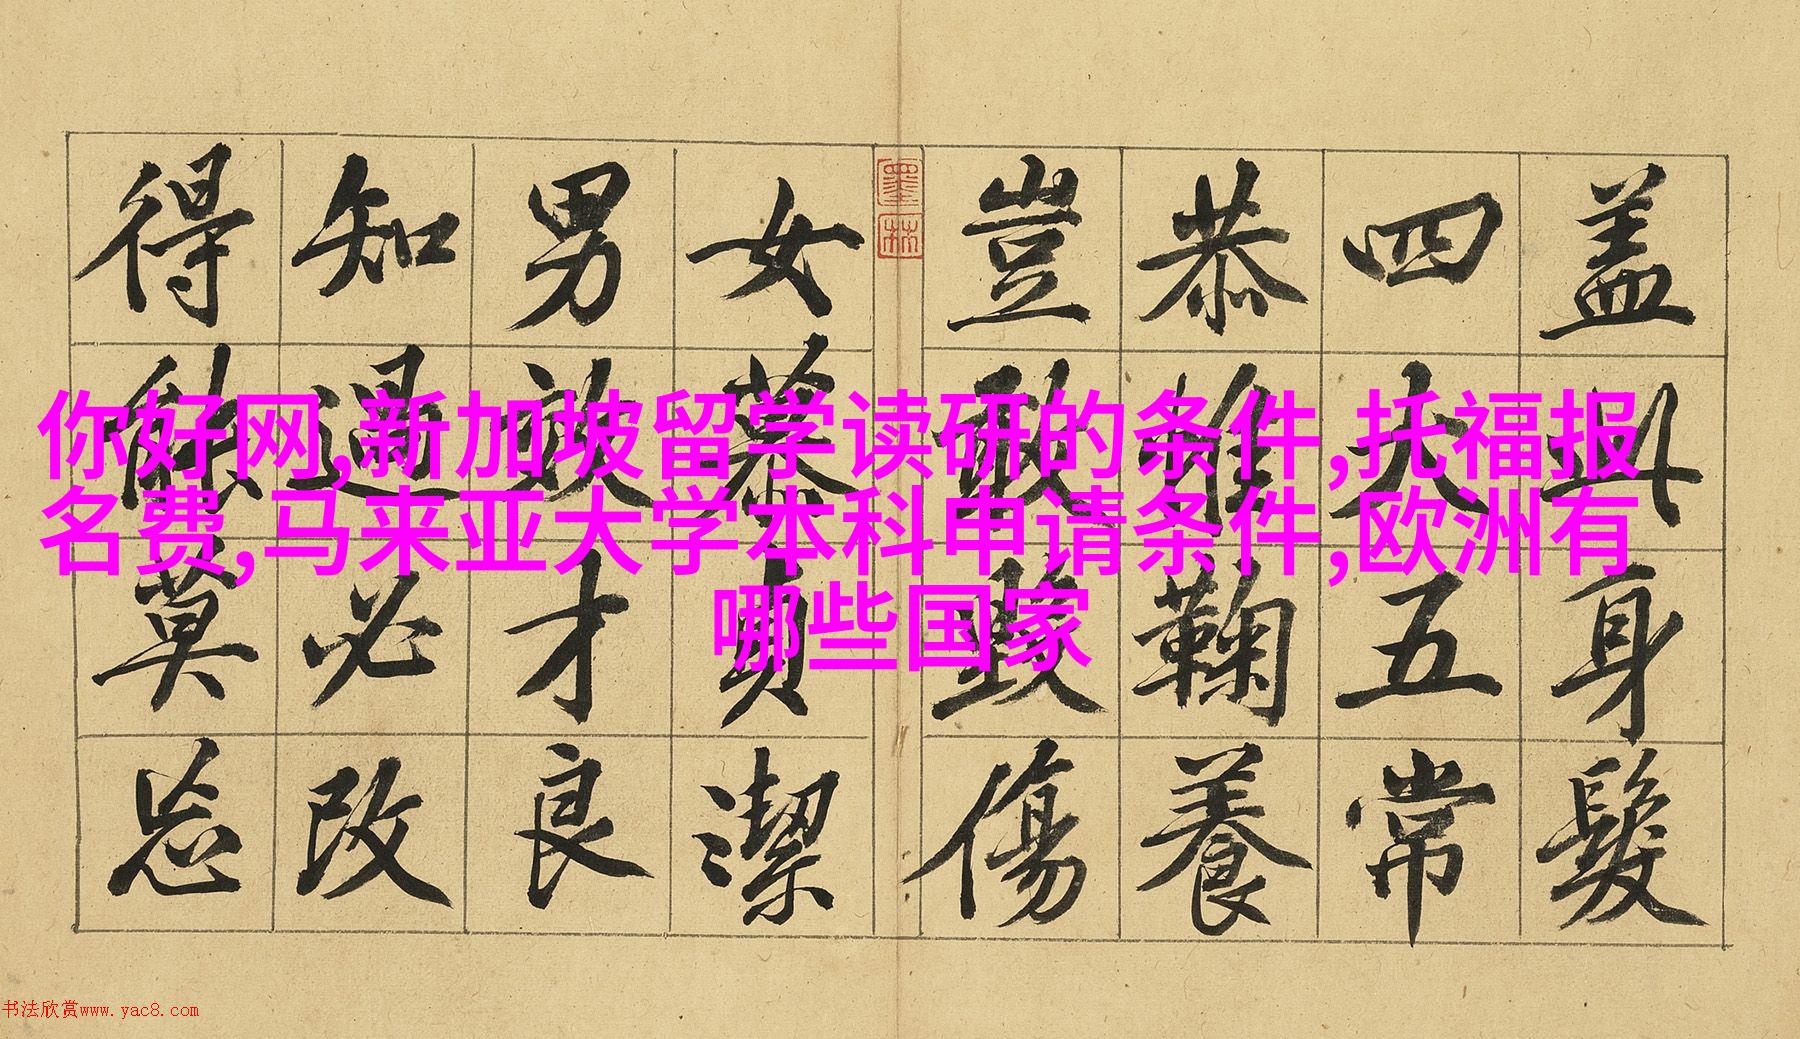 盖此身髮
四大五常
恭惟鞠養
豈敢毀傷
墨林
女慕貞潔
男效才良
知過必改
得能莫忘
你好网,新加坡留学读研的条件,托福报
名费,马来亚大学本科申请条件,欧洲有
哪些国家
书法欣赏www.yac8.com